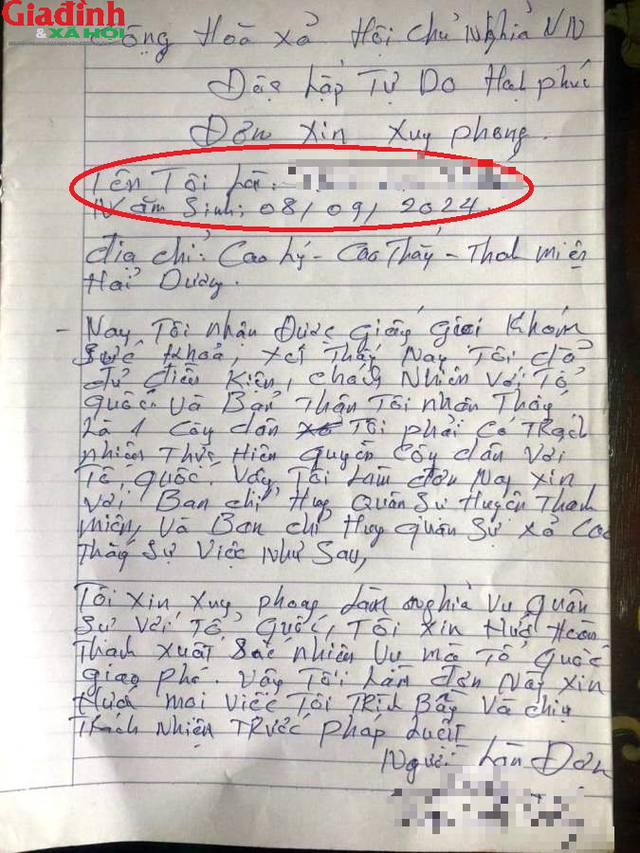 Giađình
& XÃ HỘI
Cộng Hoà Xả Hội Chủ Nghĩa VN
Độc Lập Tự Do Hạnh phúc
Đơn Xin Xuy phong.
Tên Tôi Là:
Năm Sinh: 08/09/2024
địa chỉ: Cao Lý - Cao Thắng - Thanh miện
Hải Dương.
- Nay Tôi nhận Được giấy gọi Khám
Sức khoả, xét Thấy Nay Tôi đả
đử điều Kiện, chách Nhiên Với Tổ
quốc Và Bản Thân Tôi nhận Thấy
Là 1 Côy dân Tôi phải Có Trạch
nhiêm Thực Hiên quyền Côy dân Với
Tổ, quốc. Vậy Tôi Làm đơn Nay xin
Với Ban chỉ Huy Quân Sư Huyện Thanh
miện, Và Ban chỉ Huy quân Sự xả Cao
Thắng Sự Việc Như Sau,
Tôi Xin Xuy phong Làm nghĩa Vụ quân
Sư Với Tổ Quốc, Tôi Xin Hứa Hoàn
Thanh Xuất Sắc nhiên Vụ mà Tổ Quốc
giao phó. Vậy Tôi Làm đơn Này xin
Hứa mọi Việc Tôi Trịnh Bầy Và chịu
Trách Nhiện Trước pháp Luật
Người Làn Đơn